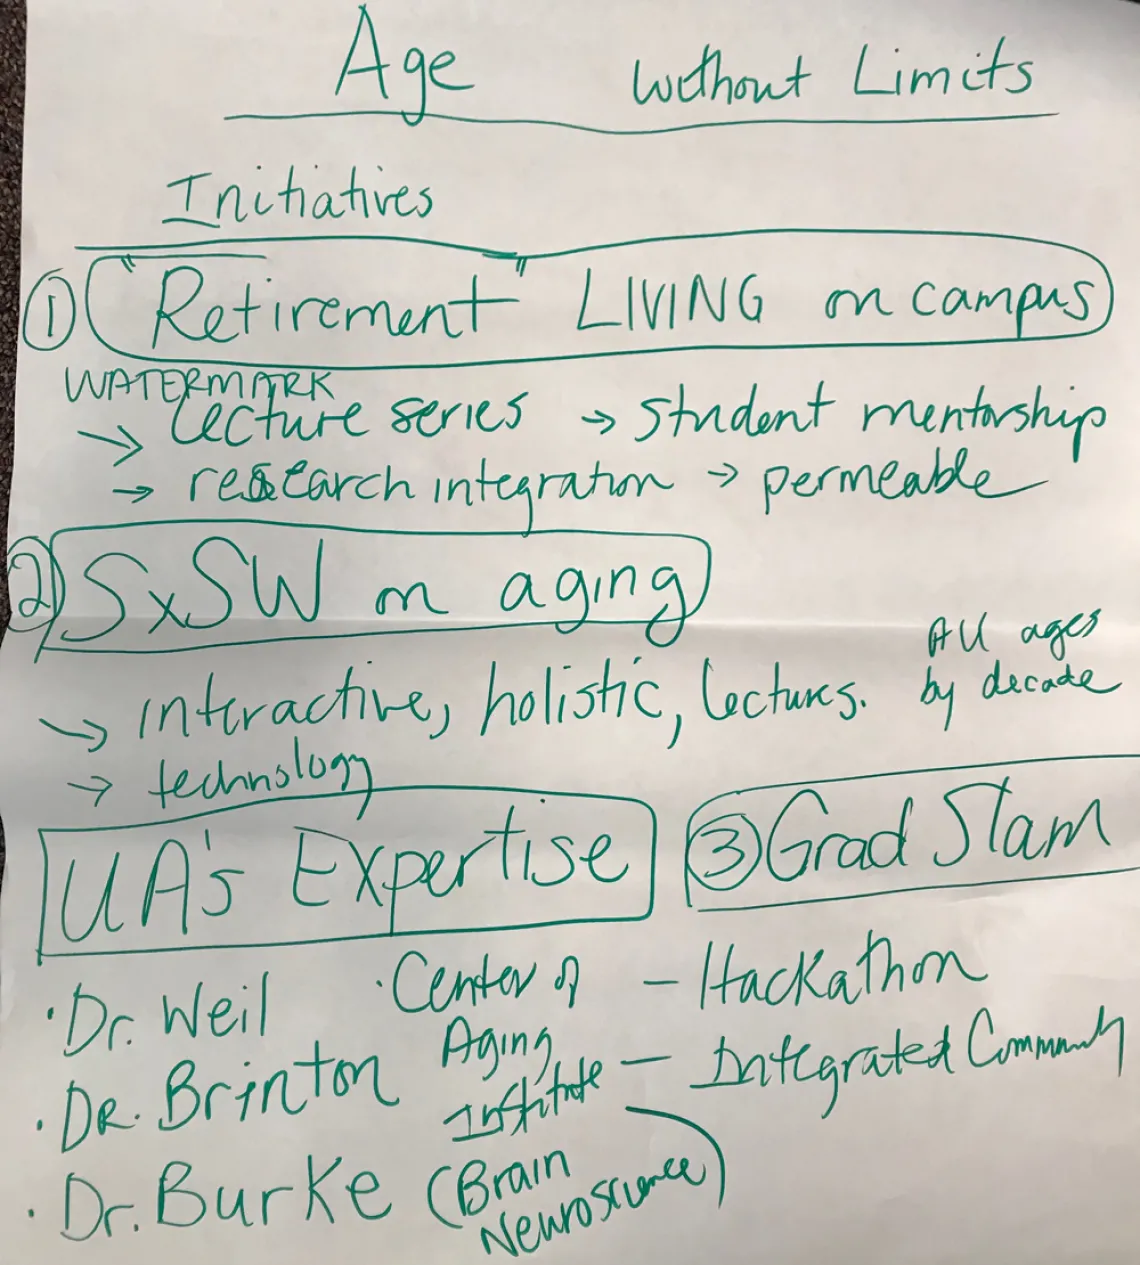 Age without Limits
Initiatives
① "Retirement" LIVING on campus
WATERMARK
→ lecture series → student mentorship
→ research integration → permeable
② SxSW on aging
All ages
by decade
→ interactive, holistic, lectures.
→ technology
UA's Expertise
· Dr. Weil
· DR. Brinton
· Dr. Burke (Brain
Neuroscience)
· Center of
Aging
Institute
③ Grad Slam
- Hackathon
- Integrated Community